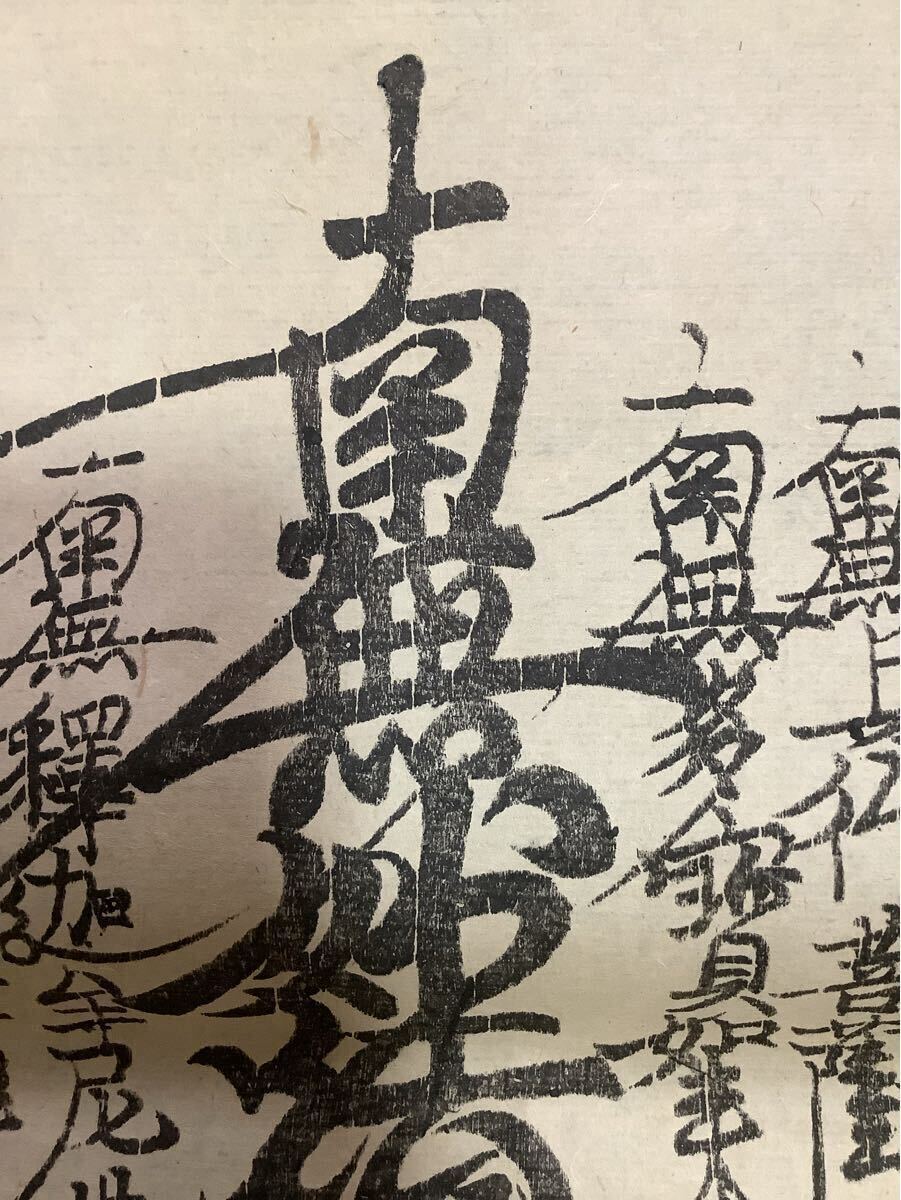 南無上行菩薩
南無多寳如来
南無妙法
南無釋迦牟尼世